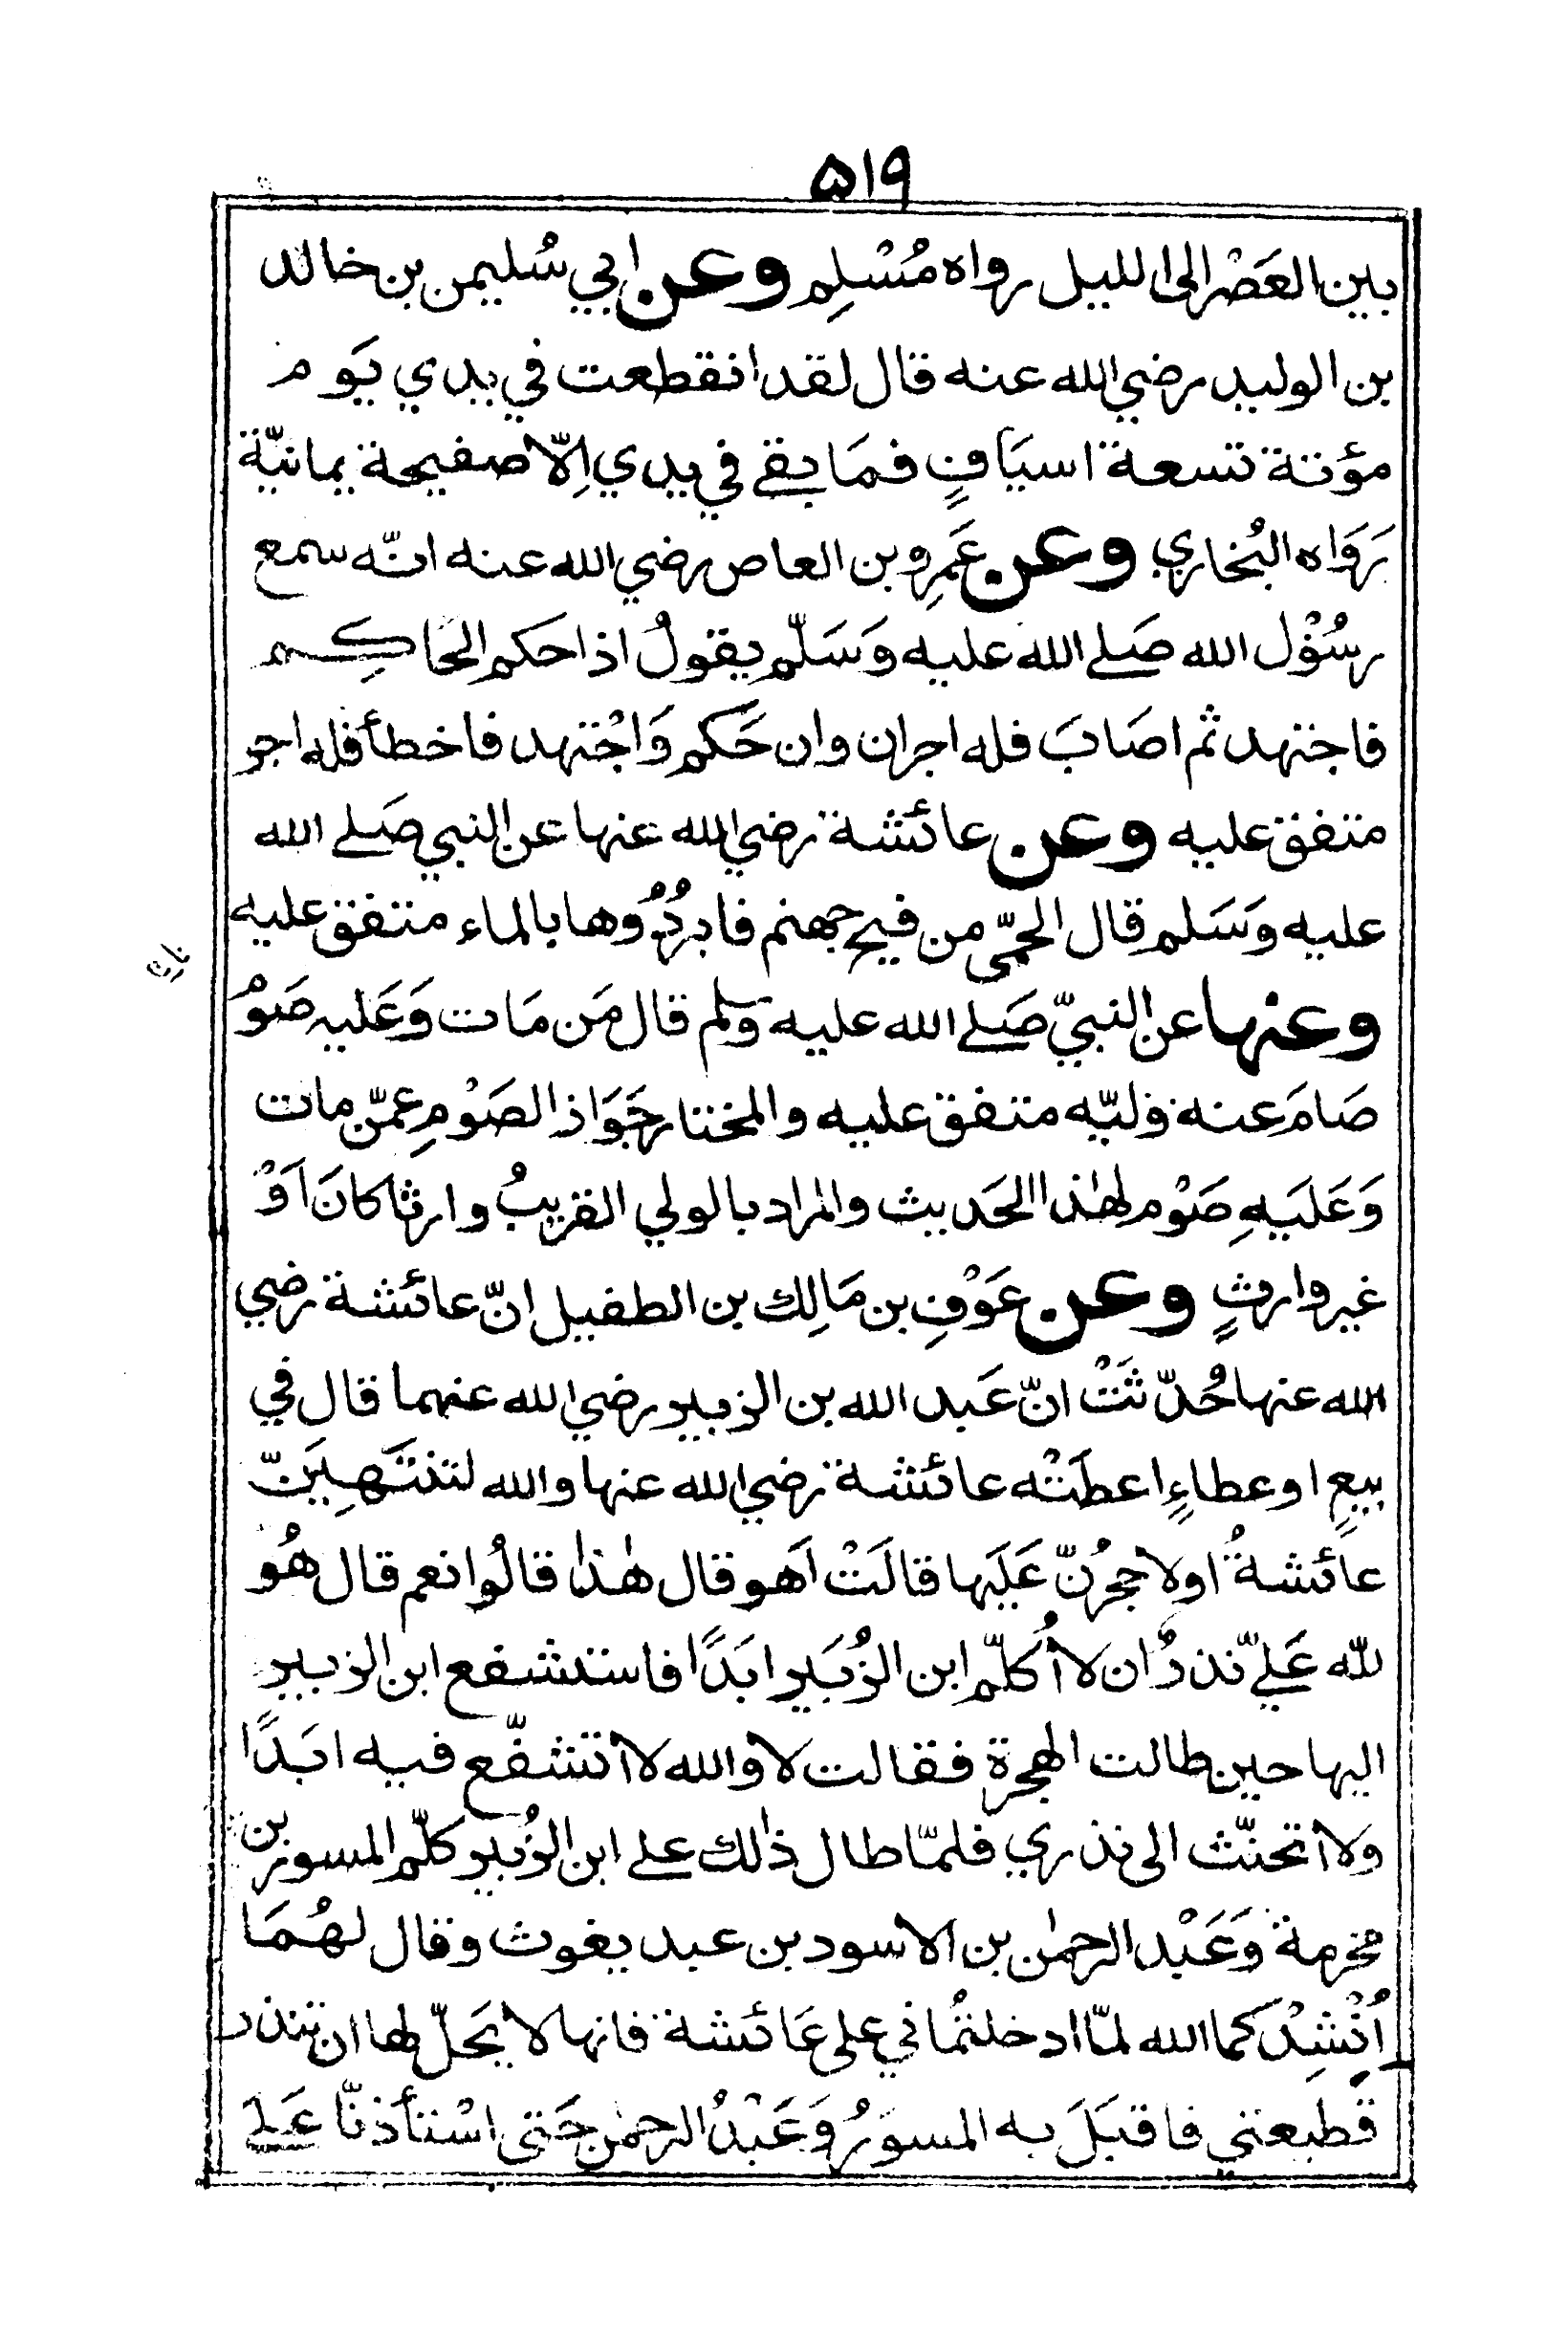 ٥١٩
بين العَصْر الى الليل رواه مُسْلِم وعن ابي سُليمن بن خالد
بن الوليد رضي الله عنه قال لقد انقطعت في يدي يَوم
مؤتة تسعة اسيَافٍ فمَا بقے في يدي اِلّا صفيحة يمانيّة
رَوَاه البُخاري وعن عَمرِو بن العاص رضي الله عنه انّه سمع
رسُوْل الله صَلے الله عليه وَسَلّم يقولُ اذا حكم الحَاكِم
فاجتهد ثم اصَابَ فله اجران وان حَكم وَاجْتهد فاخطأ فله اجر
متفق عليه وعن عائشة رضي الله عنها عن النبي صَلے الله
عليه وَسَلم قال الحمّى من فيح جهنم فابرُدُوها بالماء متفق عليه
وعنها عن النبيّ صَلے الله عليه وسلم قال مَن مَات وَعَليه صَوْم
صَامَ عنه وليّه متفق عليه والمختار جَوَاز الصَوْمِ عمّن مات
وَعَلَيهِ صَوْم لهٰذا الحَديث والمراد بالولي القريبُ وارثا كانَ اَوْ
غير وارثٍ وعن عَوْفِ بن مَالِك بن الطفيل انّ عائشة رضي
الله عنها حُدّثَتْ انّ عَبد الله بن الزبير رضي الله عنهما قال في
بيعٍ او عطاءٍ اعطَتْه عائشة رضي الله عنها والله لتنتَهِيَنّ
عائشةُ او لاحجرُنّ عَلَيها قالَتْ اَهو قال هٰذا قالُوا نعم قال هُو
للّه عَلےّ نذرٌ ان لا أُكلّم ابن الزُبَير ابَدًا فاستشفع ابن الزبير
اليها حين طالت الهجرة فقالت لا والله لا أتشفّع فيه ابَدًا
ولا أتحنّث الى نذري فلمّا طال ذٰلك علے ابن الزُبير كلّم المسور بن
مخرمة وَعَبْد الرحمٰن بن الاسود بن عبد يغوث وقال لهُمَا
اُنْشِدْكما الله لمّا ادخلتُماني على عَائشة فانها لا يَحلّ لها ان تنذر
قطيعتي فاقبَلَ به المسوَرُ وَعَبْدُ الرحمٰن حَتى اسْتأذنّا عَلےَ